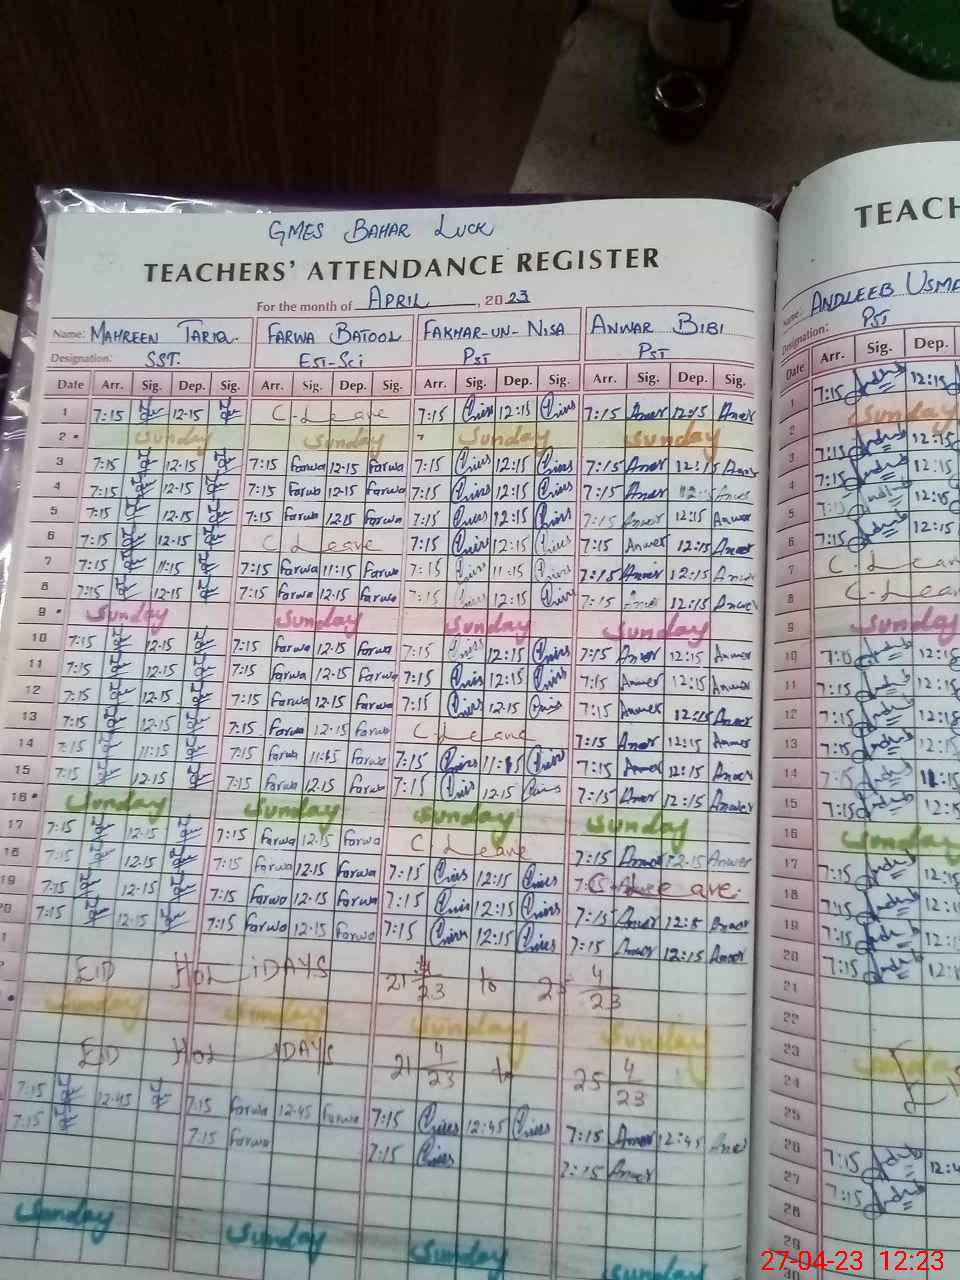 GMES BAHAR LUCK
TEACHERS' ATTENDANCE REGISTER
For the month of APRIL, 2023
Name: MAHREEN TARIQ. FARWA BATOOL FAKHAR-UN-NISA ANWAR BIBI
Designation: SST. EST-Sci PST PST
Date Arr. Sig. Dep. Sig. Arr. Sig. Dep. Sig. Arr. Sig. Dep. Sig. Arr. Sig. Dep. Sig.
1 7:15 12-15 C-Leave 7:15 12:15 7:15 Anwer 12:15 Anwer
2 Sunday Sunday Sunday Sunday
3 7:15 12-15 7:15 Farwa 12-15 Farwa 7:15 12:15 7:15 Anwer 12:15 Anwer
4 7:15 12-15 7:15 Farwa 12-15 Farwa 7:15 12:15 7:15 Anwer Anwer
5 7:15 12-15 7:15 Farwa 12-15 Farwa 7:15 12:15 7:15 Anwer 12:15 Anwer
6 7:15 12-15 C Leave 7:15 12:15 7:15 Anwer 12:15 Anwer
7 7:15 11:15 7:15 Farwa 11:15 Farwa 7:15 11:15 7:15 Anwer 12:15 Anwer
8 7:15 12-15 7:15 Farwa 12-15 Farwa 7:15 12:15 7:15 12:15 Anwer
9 Sunday Sunday Sunday Sunday
10 7:15 12-15 7:15 Farwa 12-15 Farwa 7:15 12:15 7:15 Anwer 12:15 Anwer
11 7:15 12-15 7:15 Farwa 12-15 Farwa 7:15 12:15 7:15 Anwer 12:15 Anwer
12 7:15 12-15 7:15 Farwa 12-15 Farwa 7:15 12-15 7:15 Anwer 12:15 Anwer
13 7:15 12-15 7:15 Farwa 12-15 Farwa C-Leave 7:15 Anwer 12:15 Anwer
14 7:15 11:15 7:15 Farwa Farwa 7:15 11:15 7:15 Anwer 12:15 Anwer
15 7:15 12-15 7:15 Farwa 12-15 Farwa 7:15 12-15 7:15 Anwer 12:15 Anwer
16 Sunday Sunday Sunday Sunday
17 7:15 12-15 7:15 Farwa 12-15 Farwa C Leave 7:15 Anwer 12-15 Anwer
18 7:15 12-15 7:15 Farwa 12-15 Farwa 7:15 12:15 C-Leave
19 7:15 12-15 7:15 Farwa 12-15 Farwa 7:15 12:15 7:15 Anwer Anwer
20 7:15 12-15 7:15 Farwa 12-15 Farwa 7:15 12:15 7:15 Anwer 12:15 Anwer
EID HOLIDAYS 21 4/23 to 25 4/23
Sunday Sunday Sunday Sunday
EID HOLIDAYS 21 4/23 to 25 4/23
7:15 12-45 7:15 Farwa 12-45 Farwa 7:15 12:45 7:15 Anwer 12:45 Anwer
7:15 7:15 Farwa 7:15 7:15 Anwer
Sunday Sunday Sunday Sunday
TEACH
Name: ANDLEEB USMA
Designation: PST
Date Arr. Sig. Dep.
1 7:15 12:15
2 Sunday
3 7:15 12:15
4 7:15 12:15
5 12:15
6 7:15 12:15
7 C-Leave
8 C-Leave
9 Sunday
10 7:15 12:15
11 7:15 12:15
12 7:15 12:15
13 7:15 12:15
14 7:15 11:15
15 7:15
16 Sunday
17 7:15
18 7:15
19 7:15
20 7:15
21
22
23 Sunday
24
25
26 7:15
27 7:15
28
29
30
27-04-23 12:23